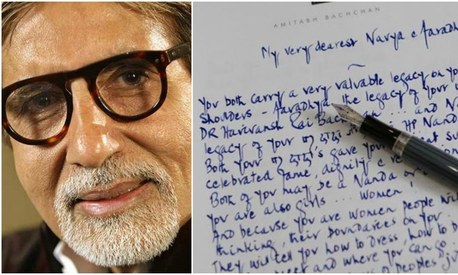 AMITABH BACHCHAN
My very dearest Navya & Aaradh
You both carry a very valuable legacy on yo
Shoulders - Aaradhya, the legacy of your
DR Harivansh Rai Bac and Na
legacy of your HP Nand
Both your gave you su
celebrated fame, dignity &
Both of you may be a Nanda or
You are also girls ... Women!
And because you are women people wil
thinking, their boundaries on you.
They will tell you how to dress, how to b
and where you can go